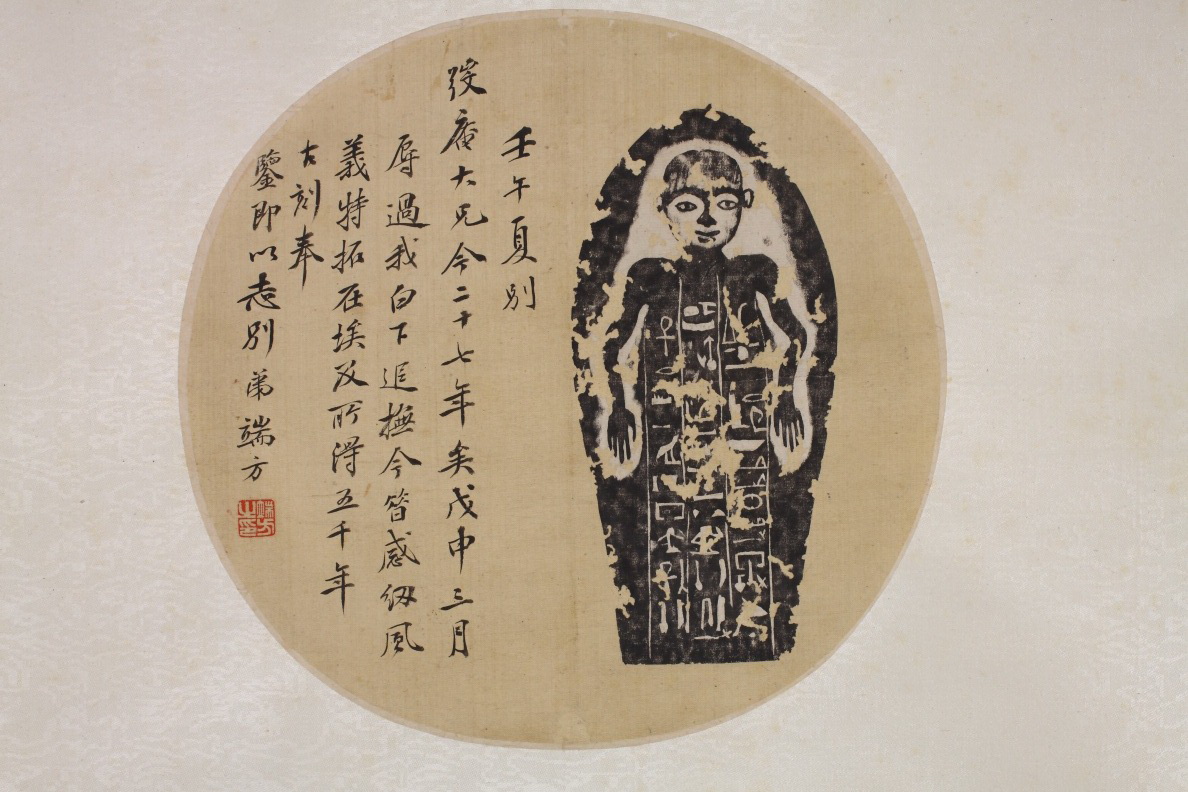 壬午夏別
弢庵大兄今二十七年矣戊申三月
辱過我白下追撫今昔感紉風
義特拓在埃及所得五千年
古刻奉
鑒即以志別弟端方
端方之印